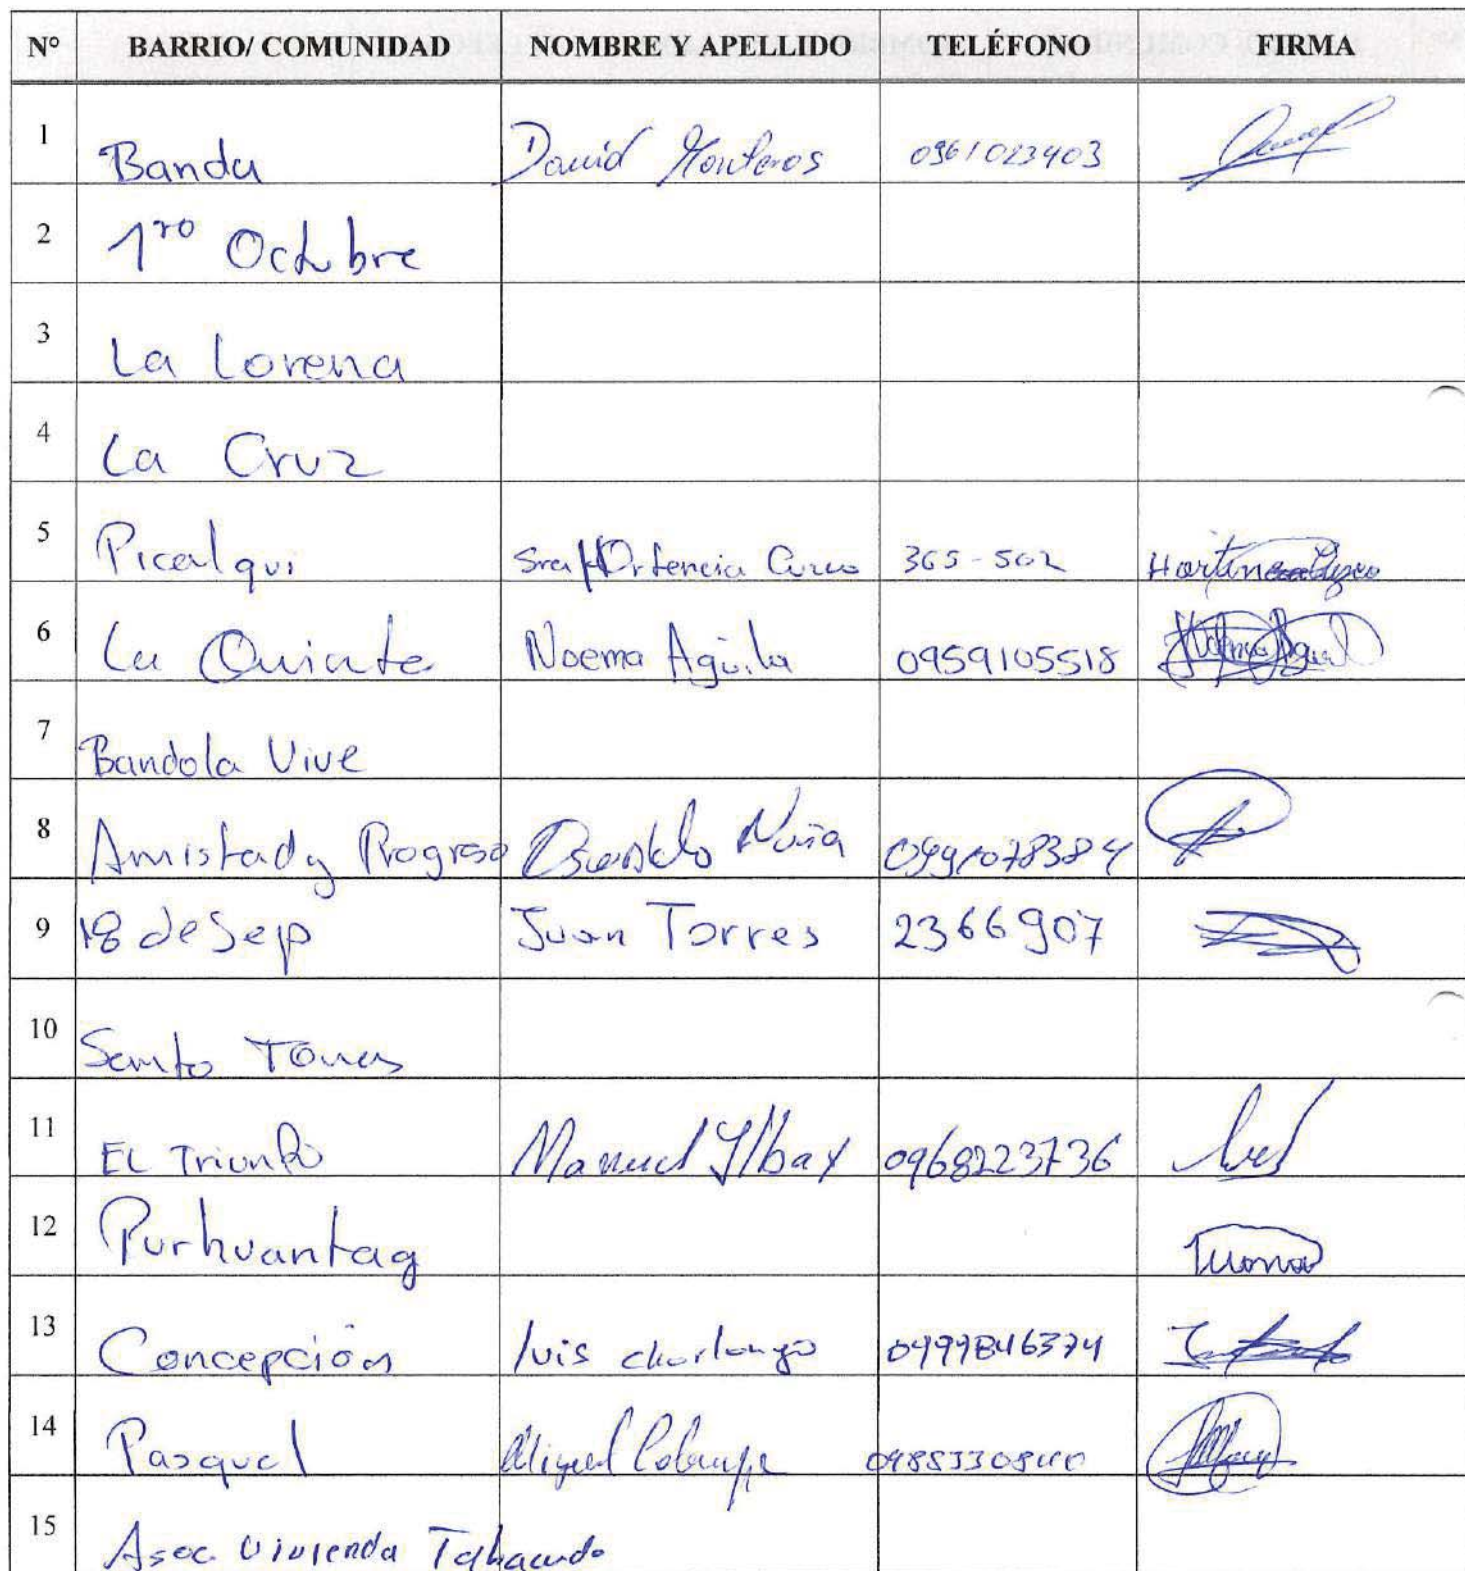 N° BARRIO/ COMUNIDAD NOMBRE Y APELLIDO TELÉFONO FIRMA
1 Banda David Monteros 0961023403
2 1ro Octubre
3 La Lorena
4 La Cruz
5 Picalqui Sra Ortencia Cuzco 365-502
6 La Quinta Noema Aguila 0959105518
7 Bandola Vive
8 Amistad y Progreso Oswaldo 0991078384
9 18 de Sep Juan Torres 2366907
10 Santo Tomas
11 EL Triunfo Manuel Ylbay 0968223736
12 Purhuantag
13 Concepción luis 0999846374
14 Pasquel Miguel
15 Asoc. Vivienda Tabacundo